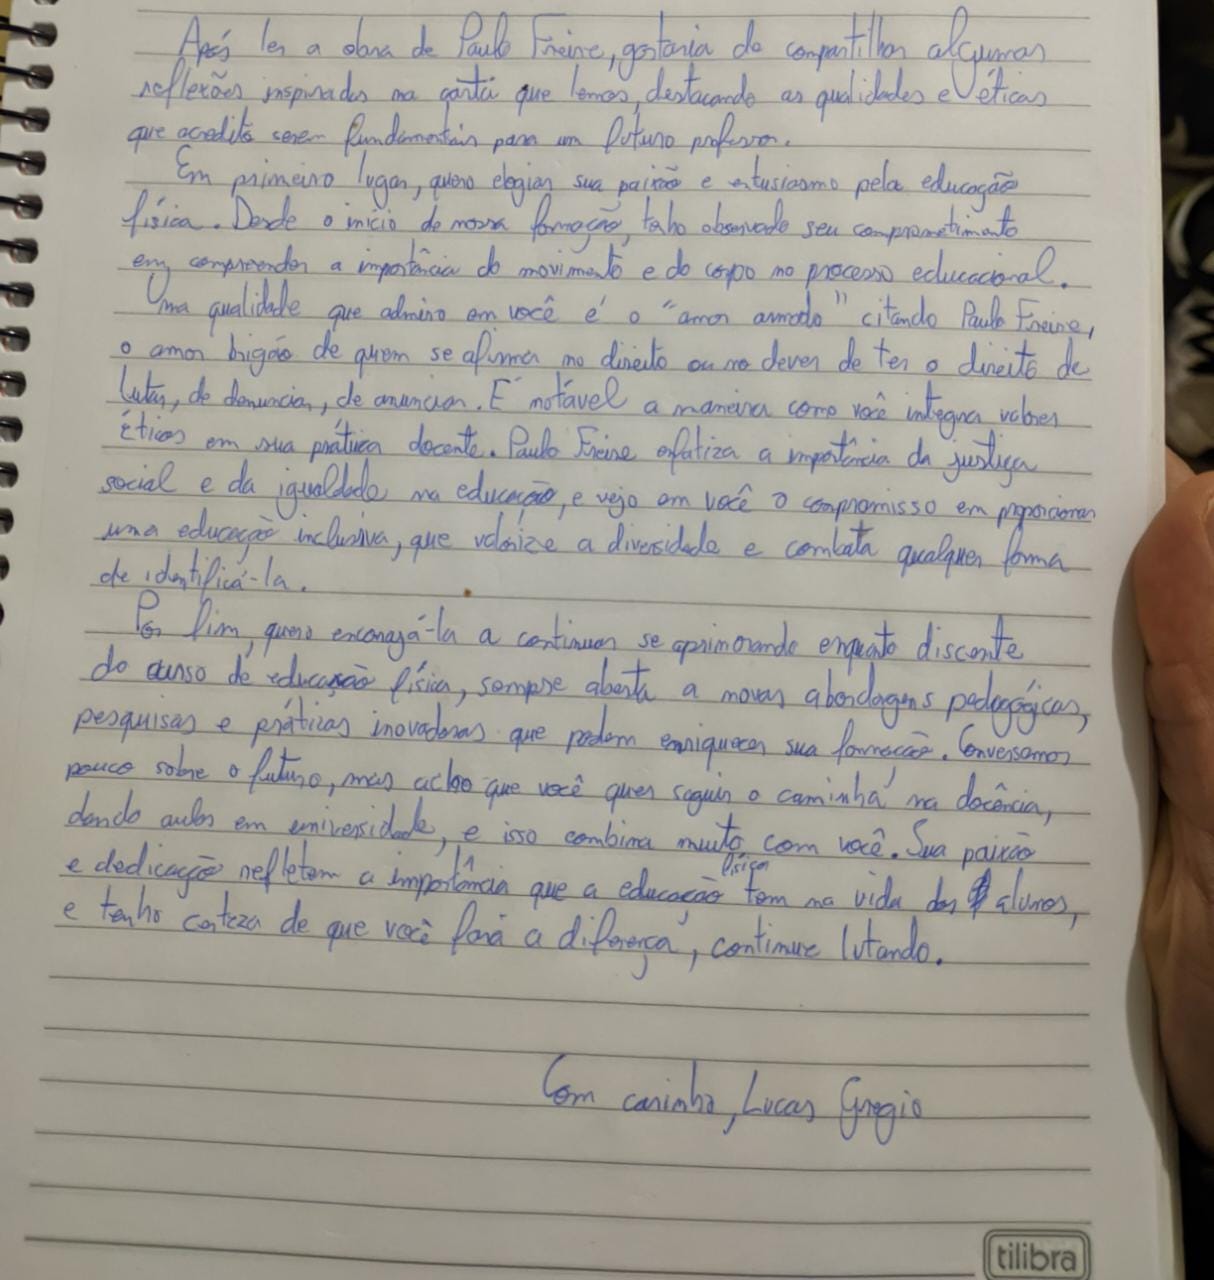 Após ler a obra de Paulo Freire, gostaria de compartilhar algumas
reflexões inspirados na carta que lemos, destacando as qualidades e éticas
que acredito serem fundamentais para um futuro professor.
Em primeiro lugar, quero elogiar sua paixão e entusiasmo pela educação
física. Desde o início de nossa formação, tenho observado seu comprometimento
em compreender a importância do movimento e do corpo no processo educacional.
Uma qualidade que admiro em você é o "amor armado" citando Paulo Freire,
o amor brigão de quem se afirma no direito ou no dever de ter o direito de
lutar, de denunciar, de anunciar. É notável a maneira como você integra valores
éticos em sua prática docente. Paulo Freire enfatiza a importância da justiça
social e da igualdade na educação, e vejo em você o compromisso em proporcionar
uma educação inclusiva, que valorize a diversidade e combata qualquer forma
de identificá-la.
Por fim, quero encorajá-la a continuar se aprimorando enquato discente
do curso de educação física, sempre aberta a novas abordagens pedagógicas,
pesquisas e práticas inovadoras que podem enriquecer sua formação. Conversamos
pouco sobre o futuro, mas acho que você quer seguir o caminho na docência,
dando aulas em universidade, e isso combina muito com você. Sua paixão
e dedicação refletem a importância que a educação física tem na vida dos alunos,
e tenho certeza de que você fará a diferença, continue lutando.
Com carinho, Lucas Gregio
tilibra